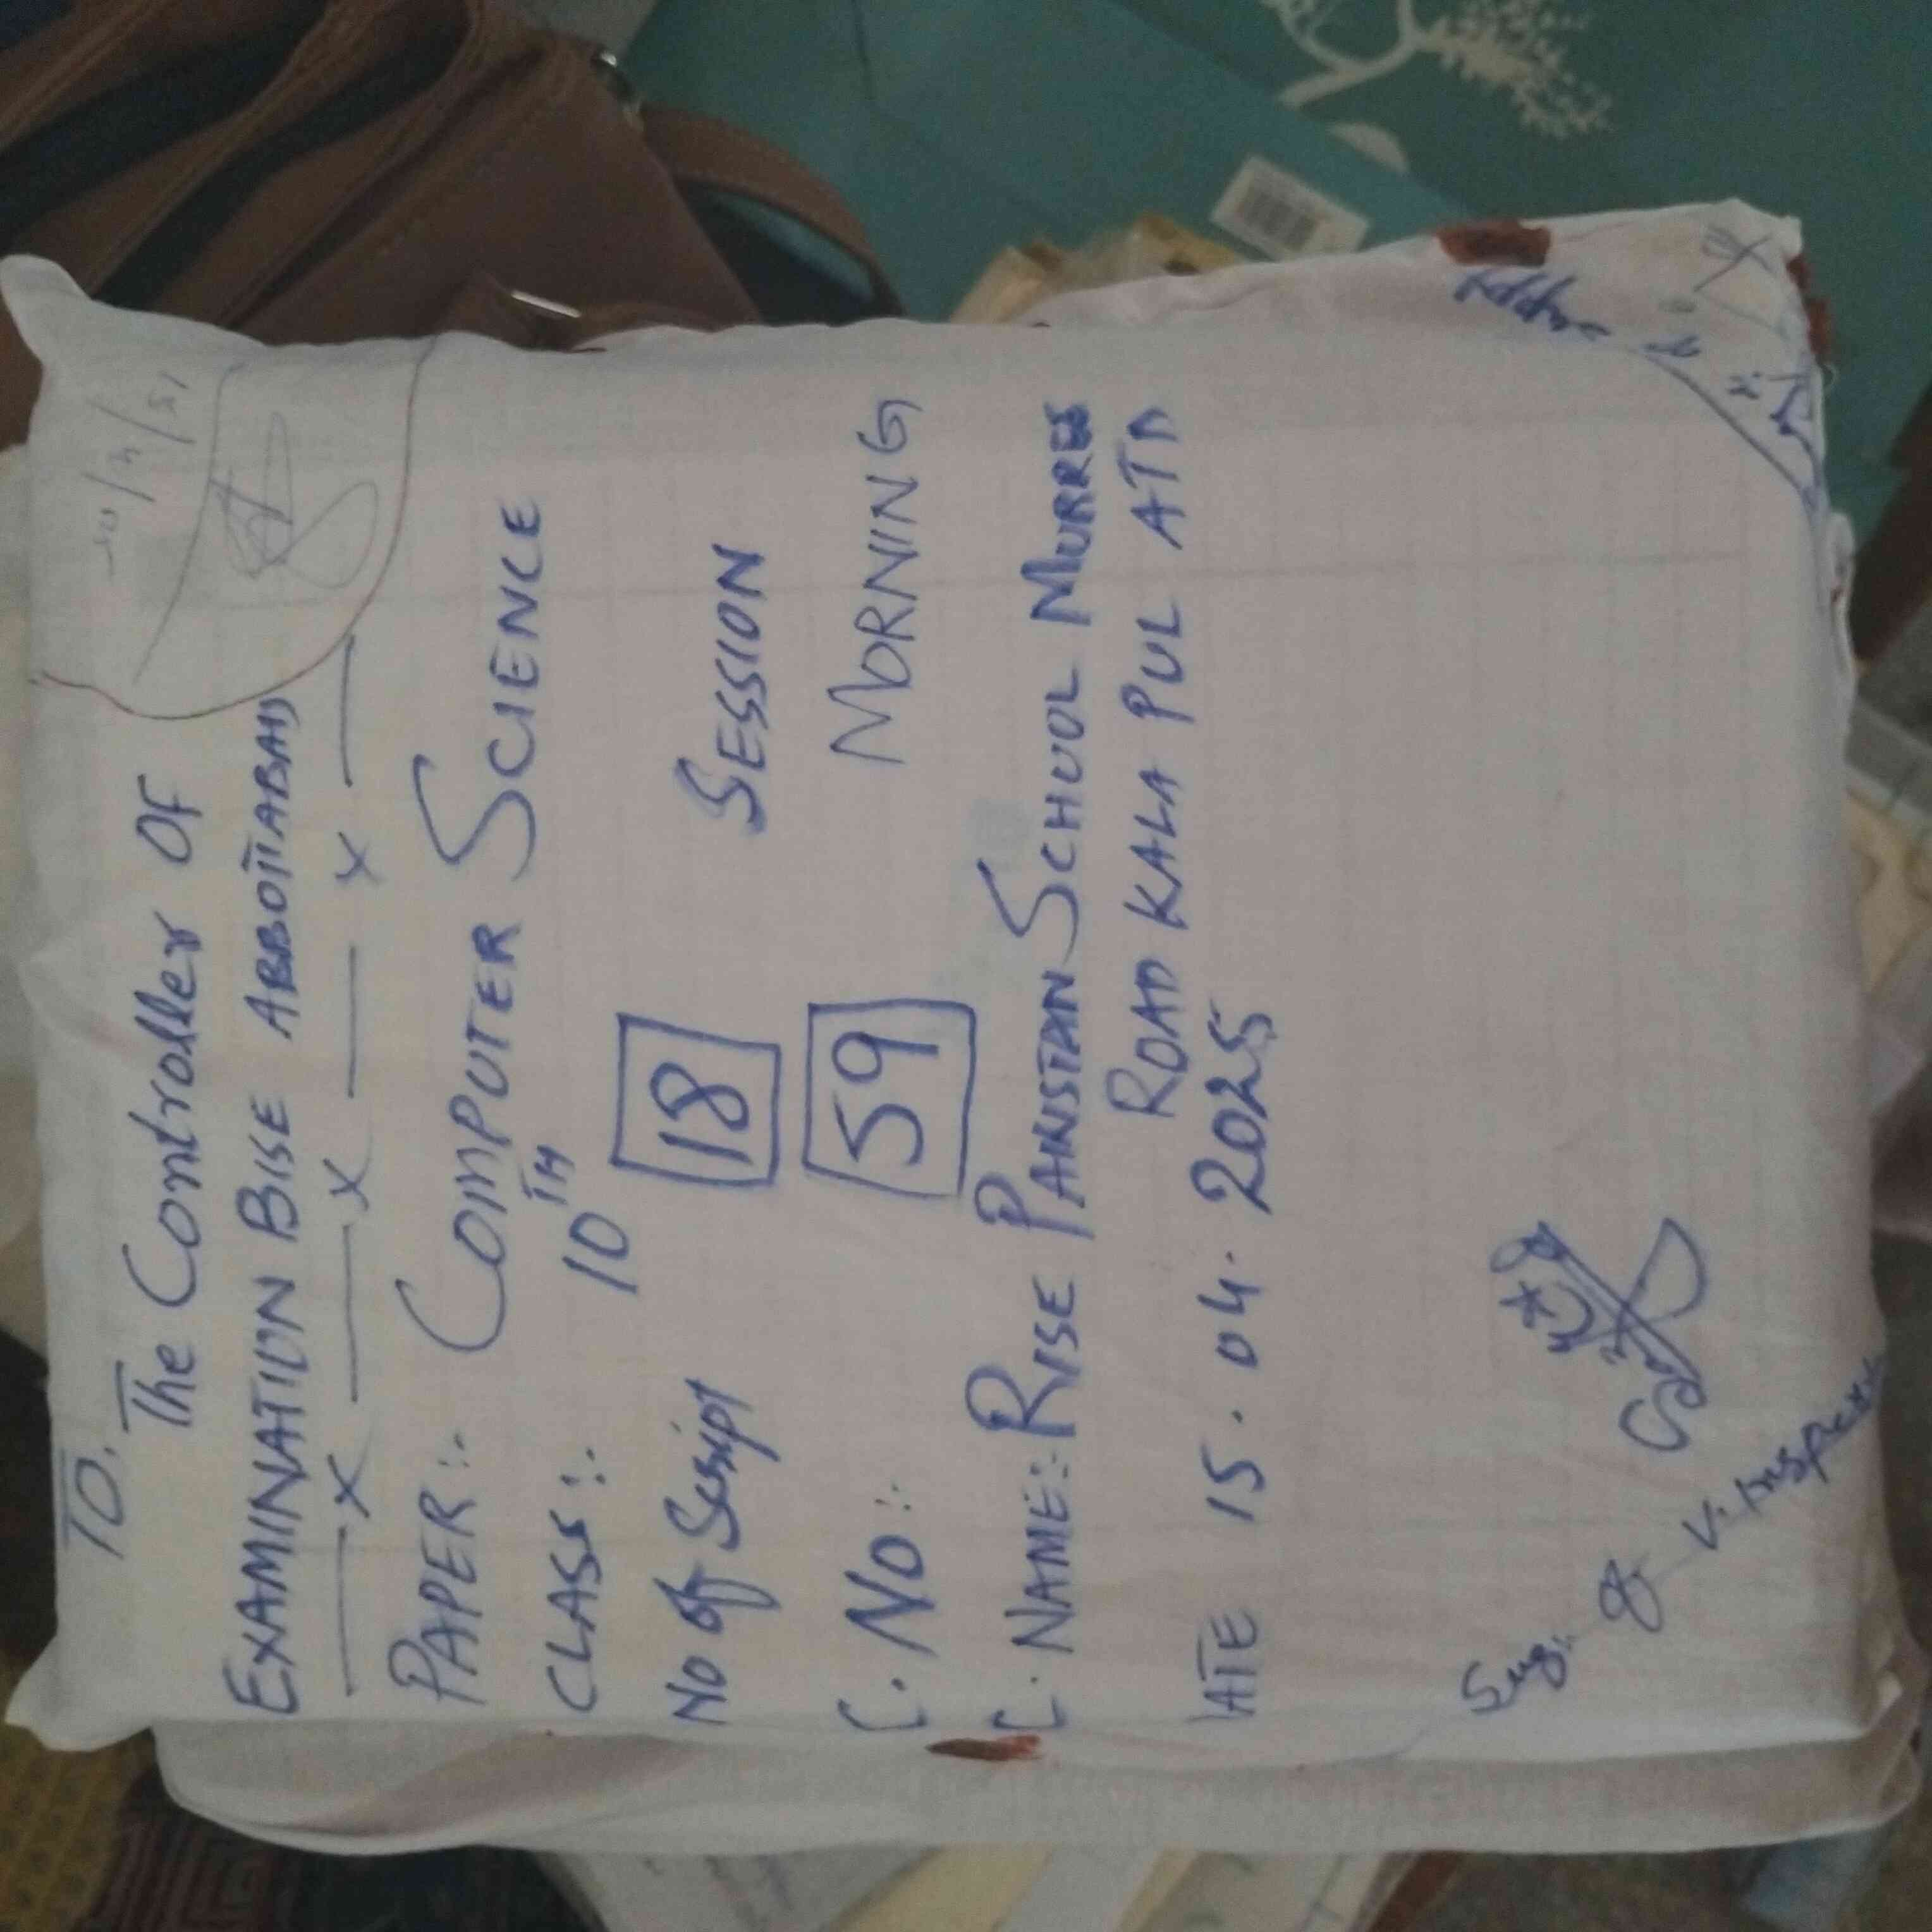 TO.
The Controller OF
EXAMINATION BISE ABBOTTABAD
— x — x — x —
PAPER:. COMPUTER SCIENCE
CLASS:. 10TH
No of Script 18 SESSION
C. No:. 59 MORNING
C. NAME:. RISE PAKISTAN SCHOOL MURREE
ROAD KALA PUL ATD
DATE 15.04.2025
V. Inspector